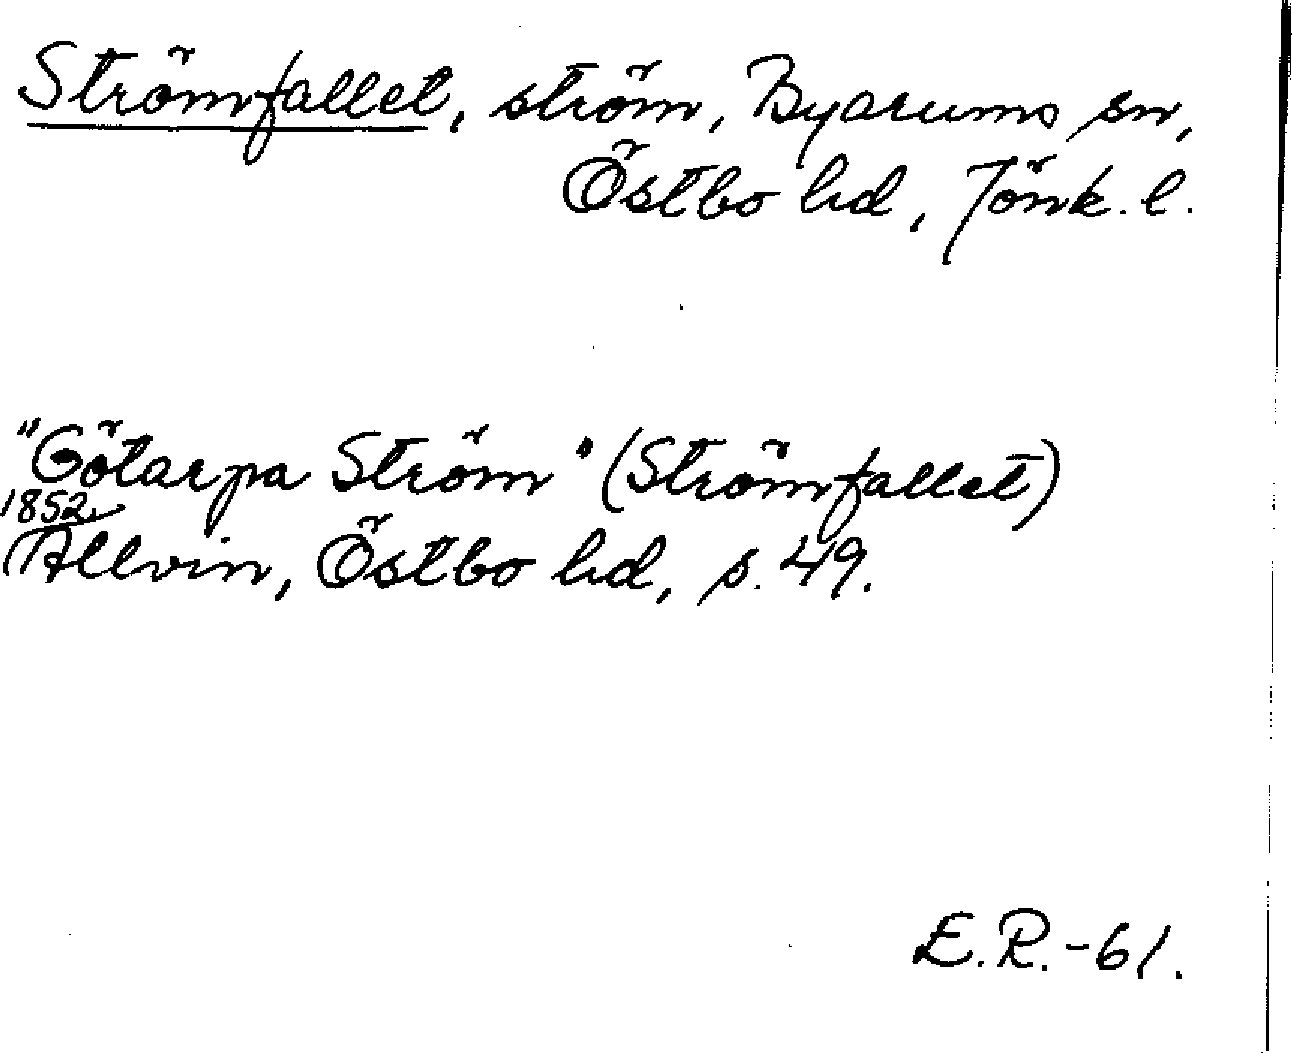 Strömfallet, ström, Byarums sn,
Östbo hd, Jönk. l.
"Götarpa Ström" (Strömfallet)
1852.
Allvin, Östbo hd, s. 49.
E.R.-61.